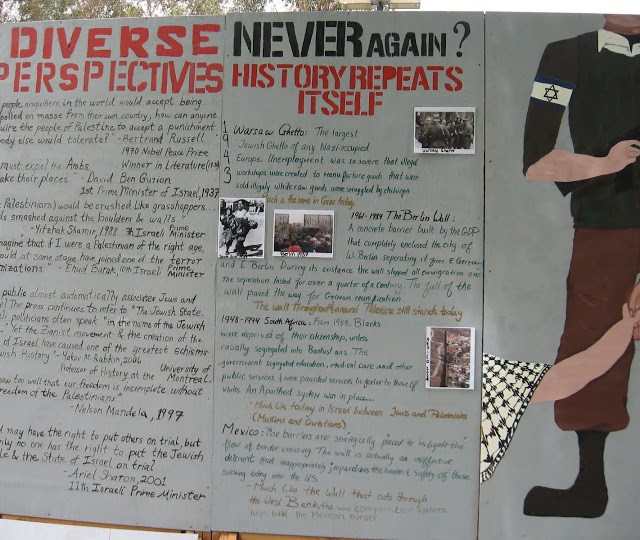 DIVERSE
PERSPECTIVES
people anywhere in the world would accept being
pelled en masse from their own country; how can anyone
uire the people of Palestine to accept a punishment
body else would tolerate?" - Bertrand Russell
1970 Nobel Peace Prize
Winner in Literature
must expel the Arabs
ake their places" - David Ben Gurion
1st Prime Minister of Israel, 1937
Palestinians) would be crushed like grasshoppers...
ds smashed against the boulders & walls "
- Yitzhak Shamir, 1988 7th Israeli Prime Minister
magine that if I were a Palestinian of the right age,
would, at some stage, have joined one of the terror
nizations" - Ehud Barak, 10th Israeli Prime Minister
public almost automatically associate Jews and
The press continues to refer to "The Jewish State,
politicians often speak "in the name of the Jewish
Yet the Zionist movement & the creation of the
of Israel have caused one of the greatest schisms
wish History" - Yakov M. Rabkin, 2006
Professor of History, at the University of Montreal.
now too well that our freedom is incomplete without
reedom of the Palestinians"
- Nelson Mandela, 1997
I may have the right to put others on trial, but
only no one has the right to put the Jewish
le & the State of Israel on trial
- Ariel Sharon, 2001
11th Israeli Prime Minister
NEVER AGAIN?
HISTORY REPEATS
ITSELF
1943
Warsaw Ghetto: The largest
Jewish Ghetto of any Nazi-occupied
Europe. Unemployment was so severe that illegal
workshops were created to manufacture goods that were
sold illegally while raw goods were smuggled by children
Such is the same in Gaza today
Warsaw Ghetto
Berlin Wall
1961-1989 The Berlin Wall:
A concrete barrier built by the GDP
that completely enclosed the city of
W. Berlin, seperating it from E Germany
and E Berlin. During its existance the wall stopped all emmigration and
the seperation lasted for over a quarter of a century. The fall of the
wall paved the way for German reunification.
The wall throughout/around Palestine still stands today
1948-1994 South Africa: From 1958, Blacks
were deprived of their citizenship, unless
racially segregated into Bantustans. The
government segregated education, medical care and other
public services, & were provided services inferior to those of
whites. An Apartheid system was in place...
- Much like today in Israel between Jews and Palestinians
(Muslims and Christians)
Mexico: The barriers are strategically placed to mitigate the
flow of border crossing. The wall is actually an ineffective
deterrent that inappropriately jepardizes the health & safety of those
seeking entry into the US
- Much like the Wall that cuts through
the West Bank, the same company, Elbit Systems
helps build the Mexican border